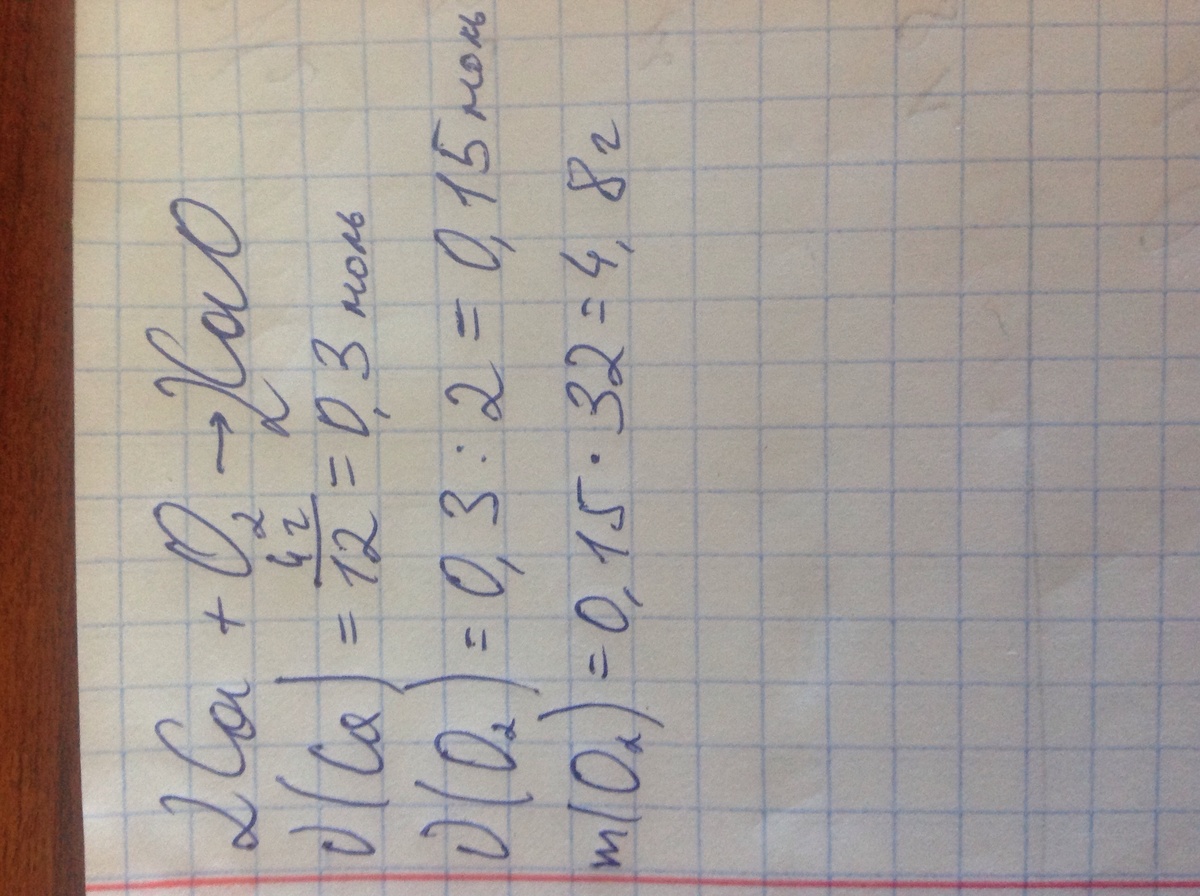 2Ca + O₂ → 2CaO
ν(Ca) = 4г/12 = 0,3 моль
ν(O₂) = 0,3 : 2 = 0,15 моль
m(O₂) = 0,15 · 32 = 4,8 г